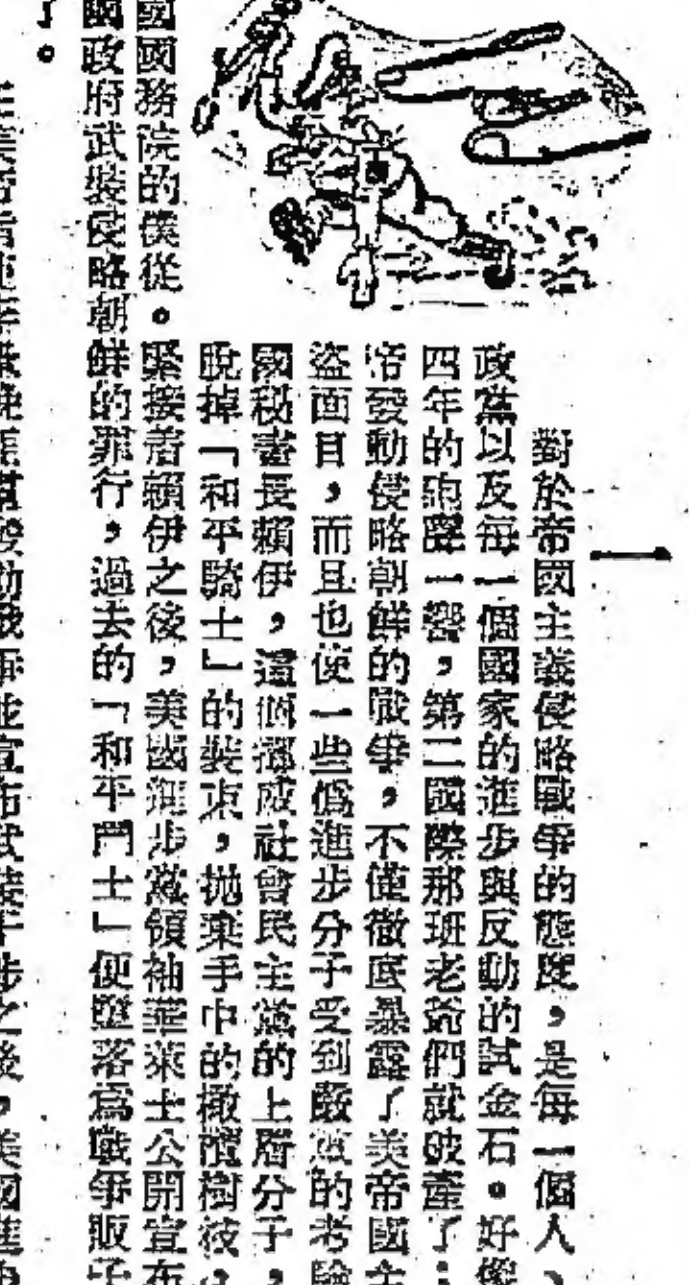 一
對於帝國主義侵略戰爭的態度，是每一個人、
政黨以及每一個國家的進步與反動的試金石。好像
四年的砲聲一響，第二國際那班老爺們就破產了；
帝發動侵略朝鮮的戰爭，不僅徹底暴露了美帝國主
盜面目，而且也使一些僞進步分子受到嚴重的考驗
國秘書長賴伊，這個挪威社會民主黨的上層分子，
脫掉「和平騎士」的裝束，拋棄手中的橄欖樹枝，
國國務院的僕從。緊接着賴伊之後，美國進步黨領袖華萊士公開宣布
國政府武裝侵略朝鮮的罪行，過去的「和平鬥士」便墮落爲戰爭販子
了。
動戰爭並宣布武裝干涉之後，美國進步